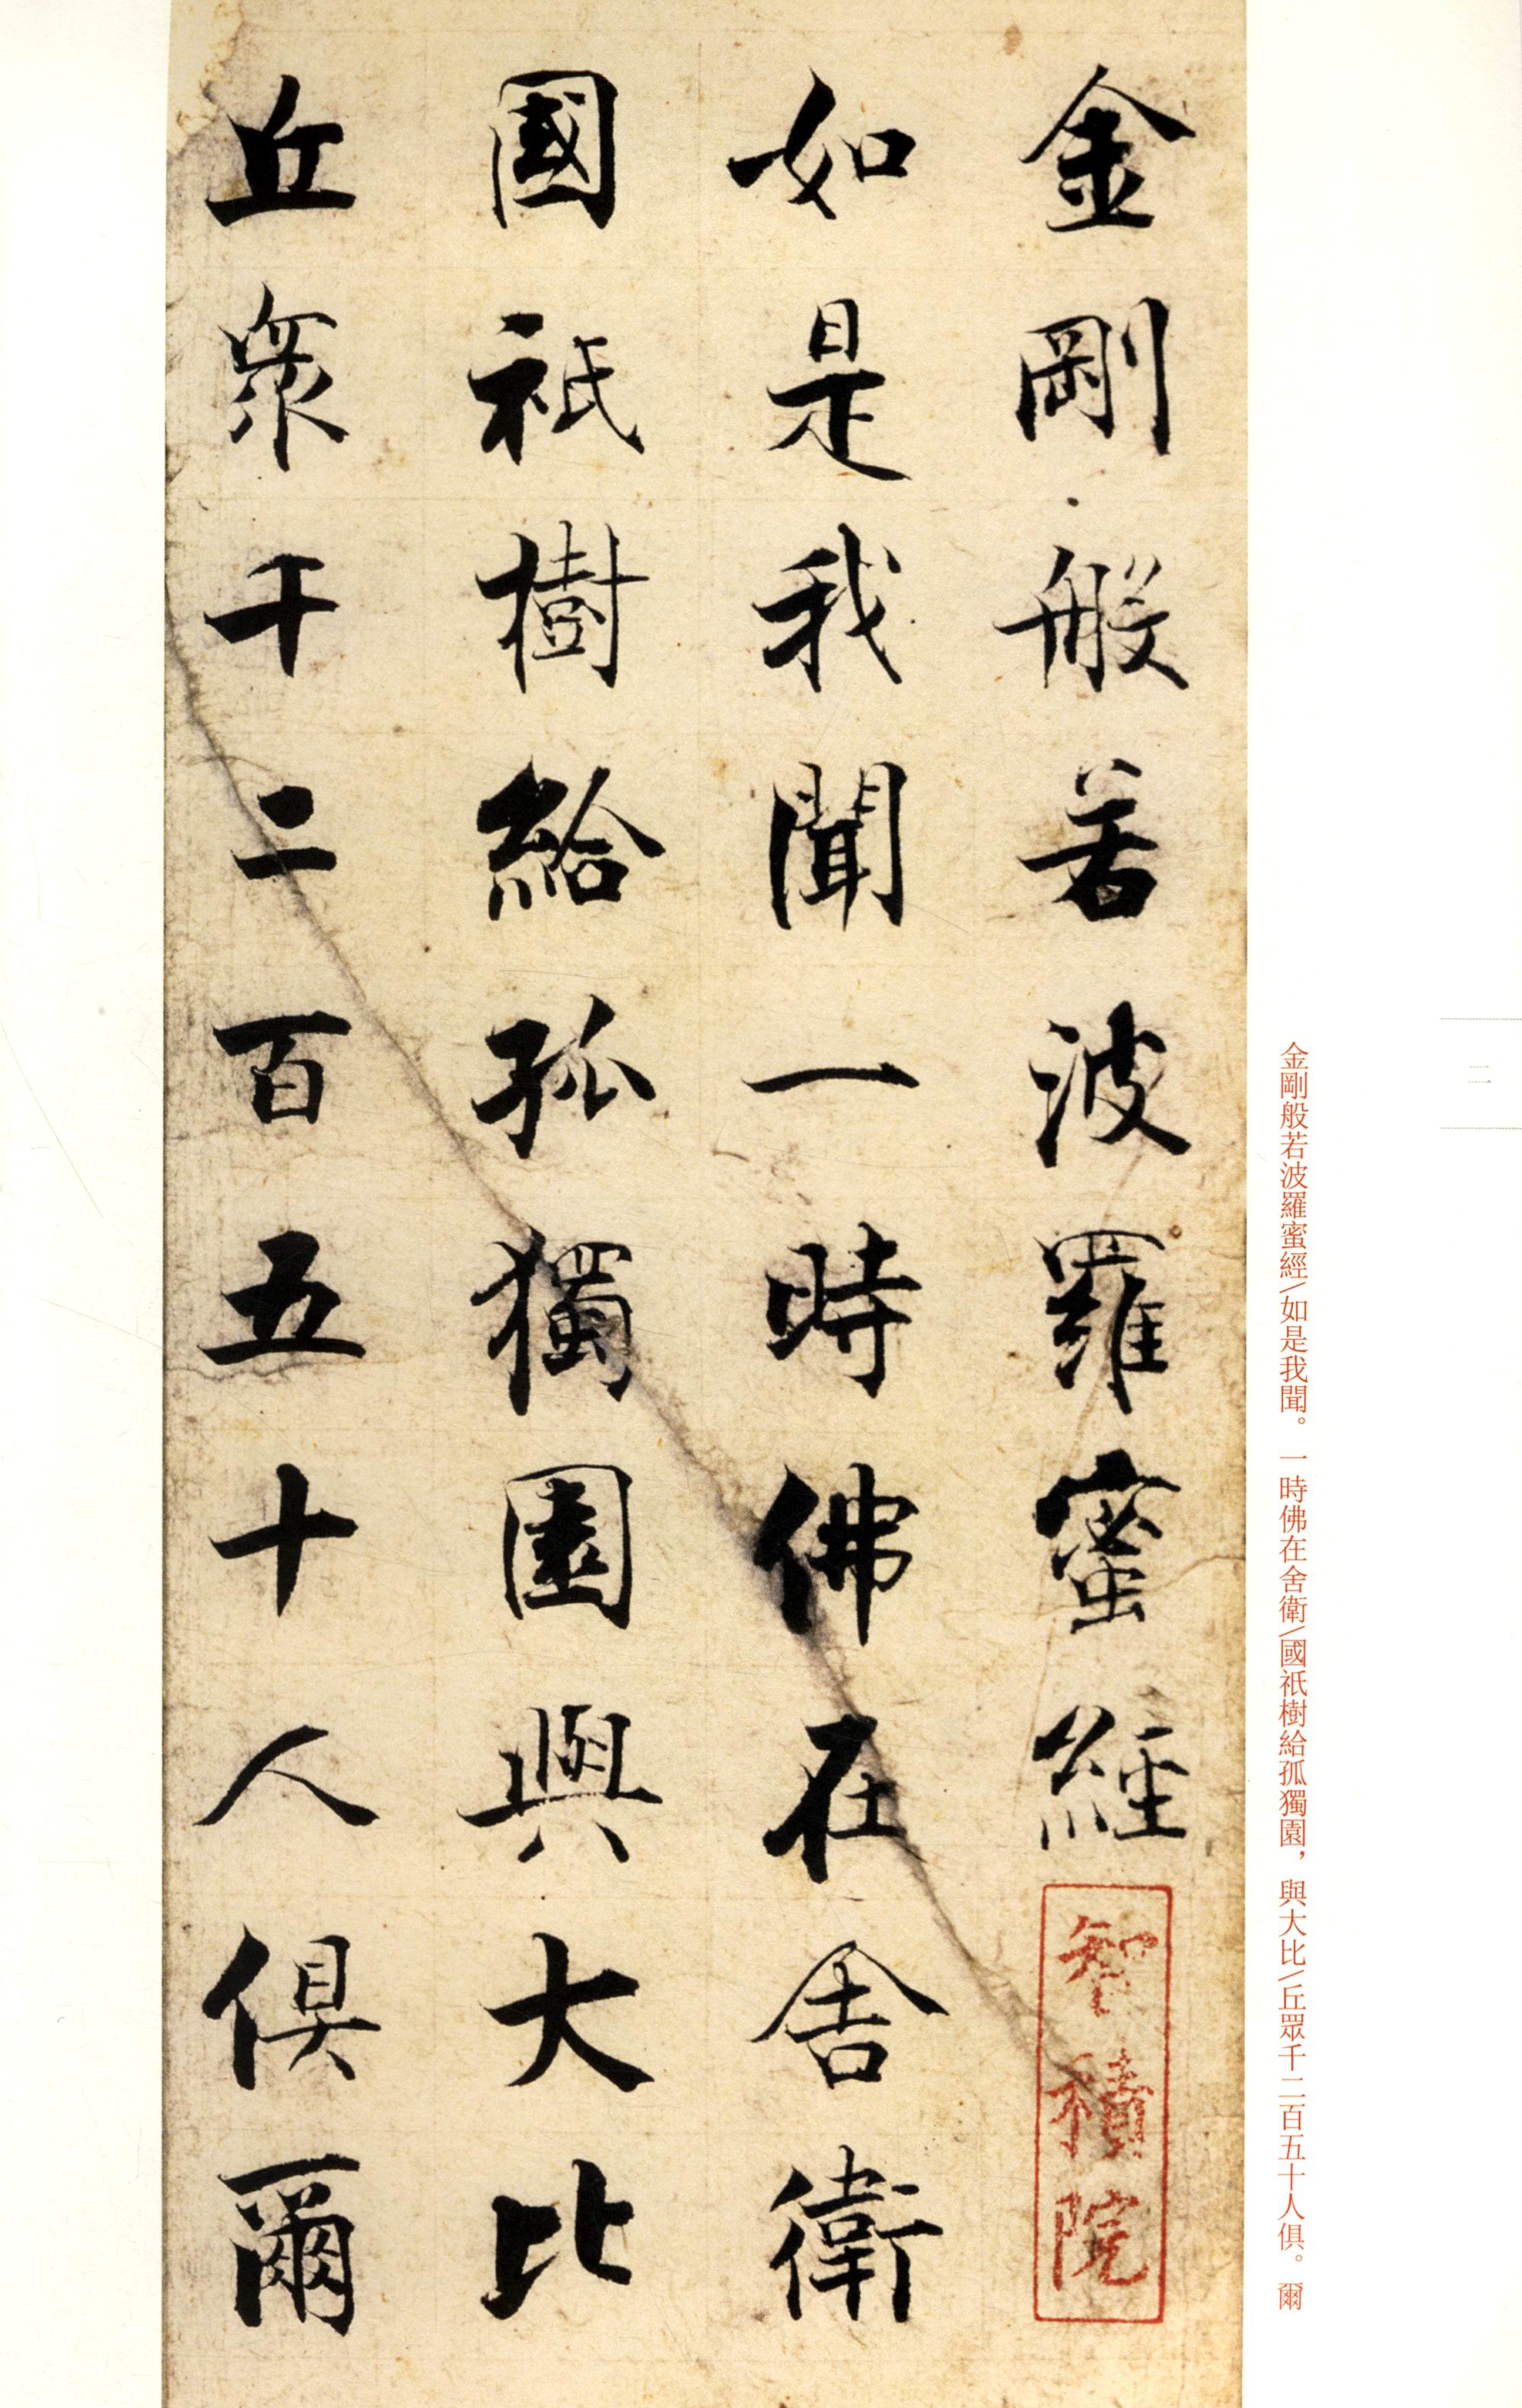 金剛般若波羅蜜經
智積院
如是我聞一時佛在舍衛
國祇樹給孤獨園與大比
丘衆千二百五十人俱爾
二
金剛般若波羅蜜經\如是我聞。一時佛在舍衛\國祇樹給孤獨園，與大比\丘眾千二百五十人俱。爾